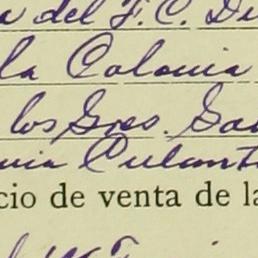 a del F. C. De
la Colonia
los Sres. Sa
uia Culant
cio de venta de la